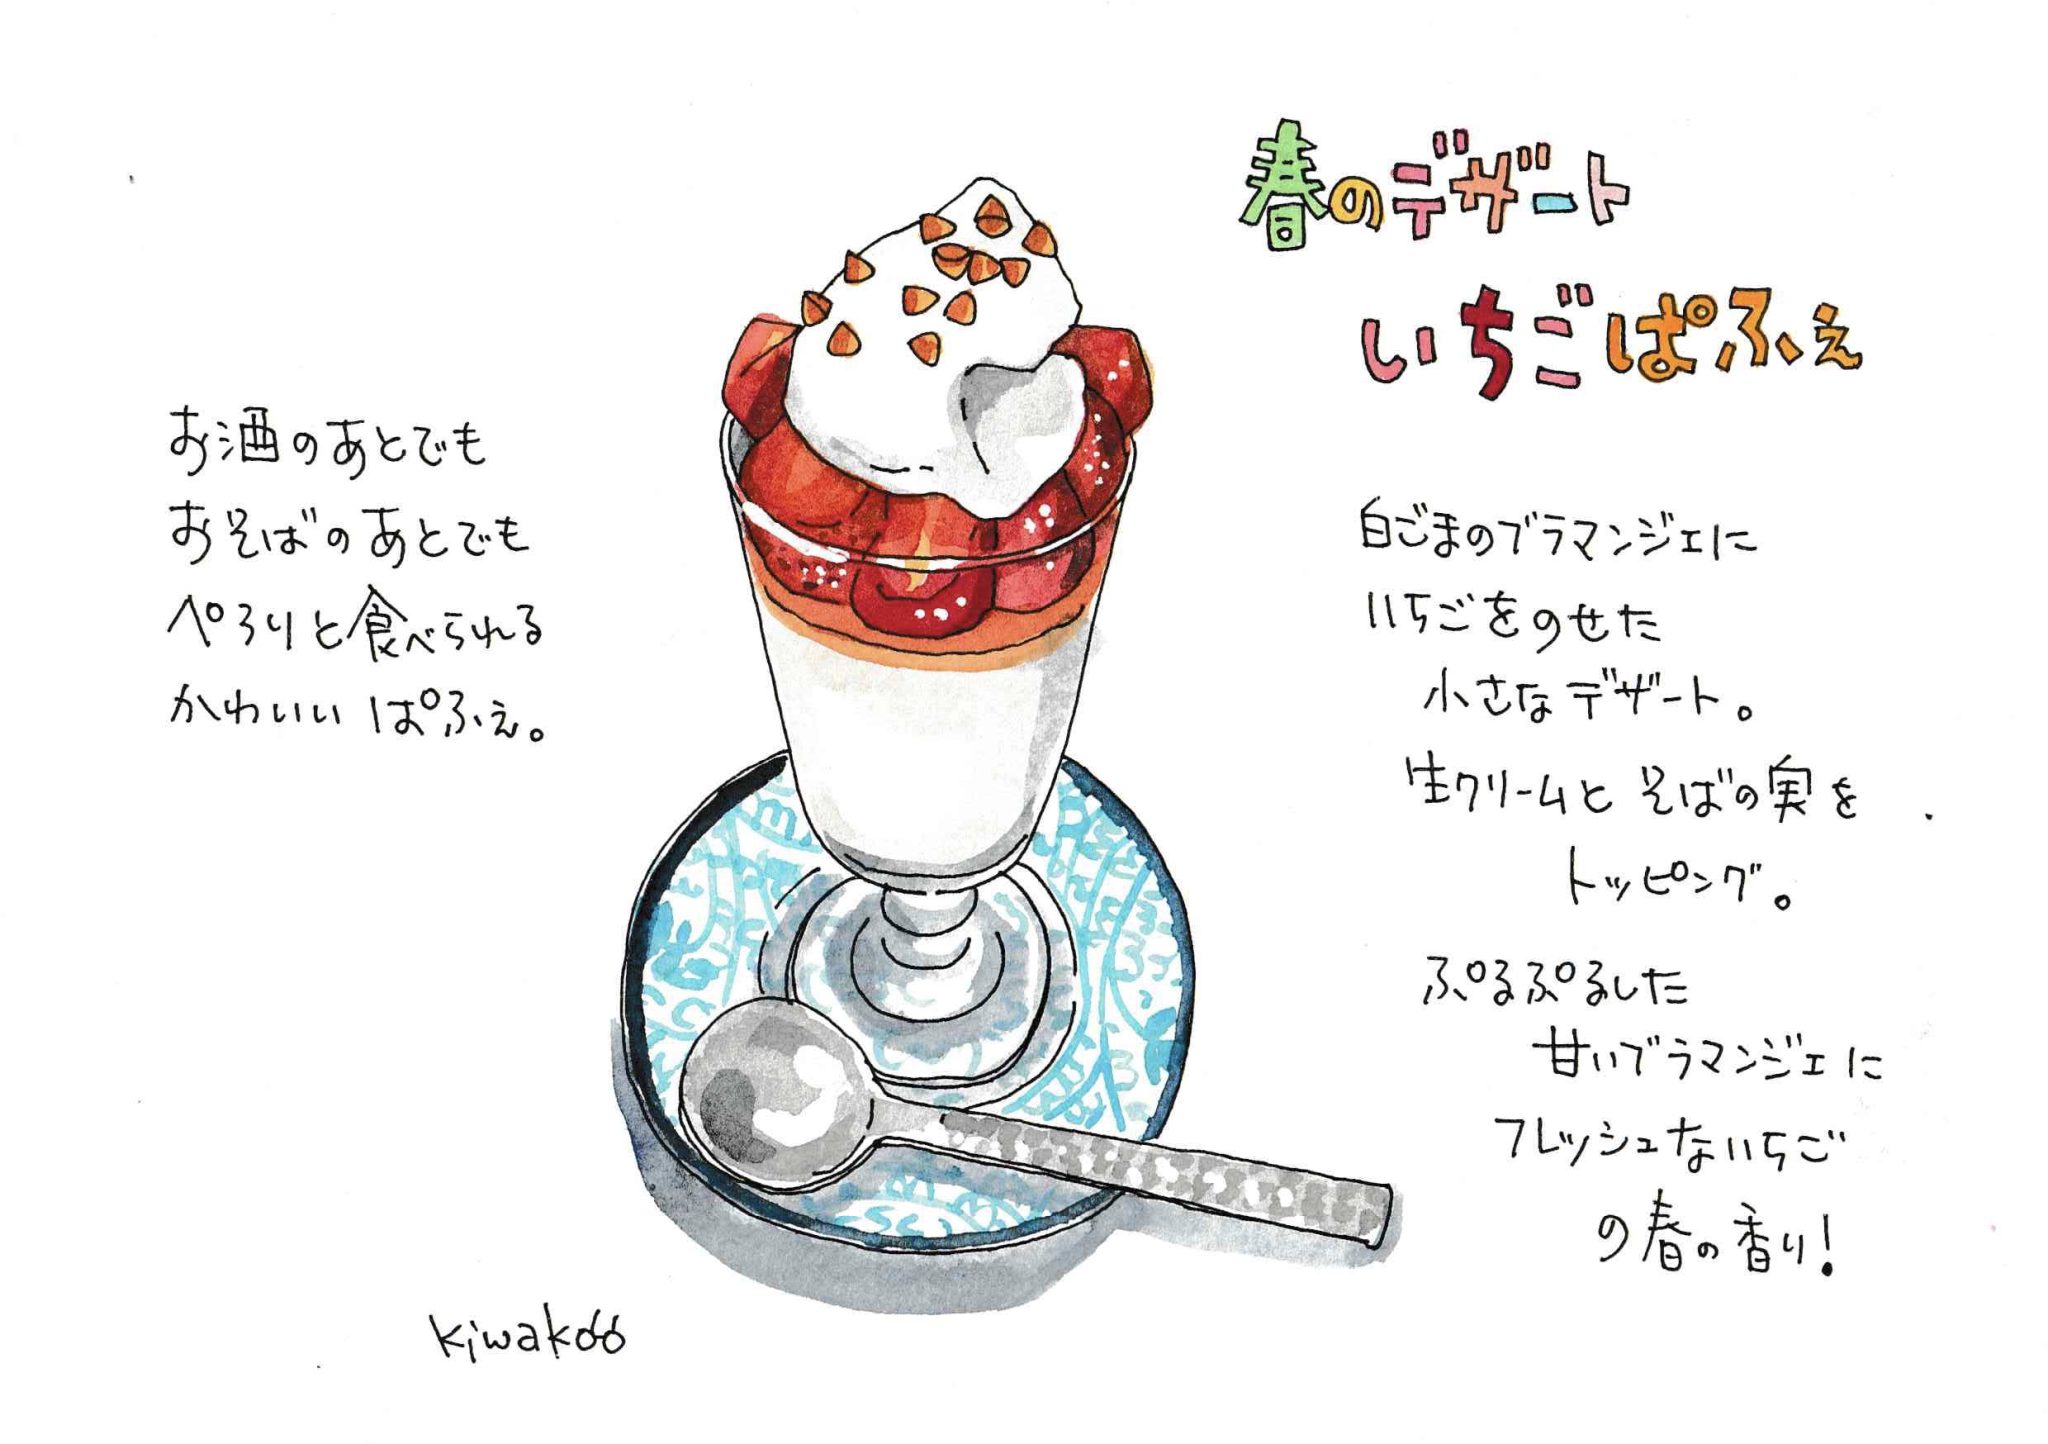 春のデザート
いちごぱふぇ
お酒のあとでも
おそばのあとでも
ぺろりと食べられる
かわいいぱふぇ。
白ごまのブラマンジェに
いちごをのせた
小さなデザート。
生クリームとそばの実を
トッピング。
ぷるぷるした
甘いブラマンジェに
フレッシュないちご
の春の香り!
kiwako66